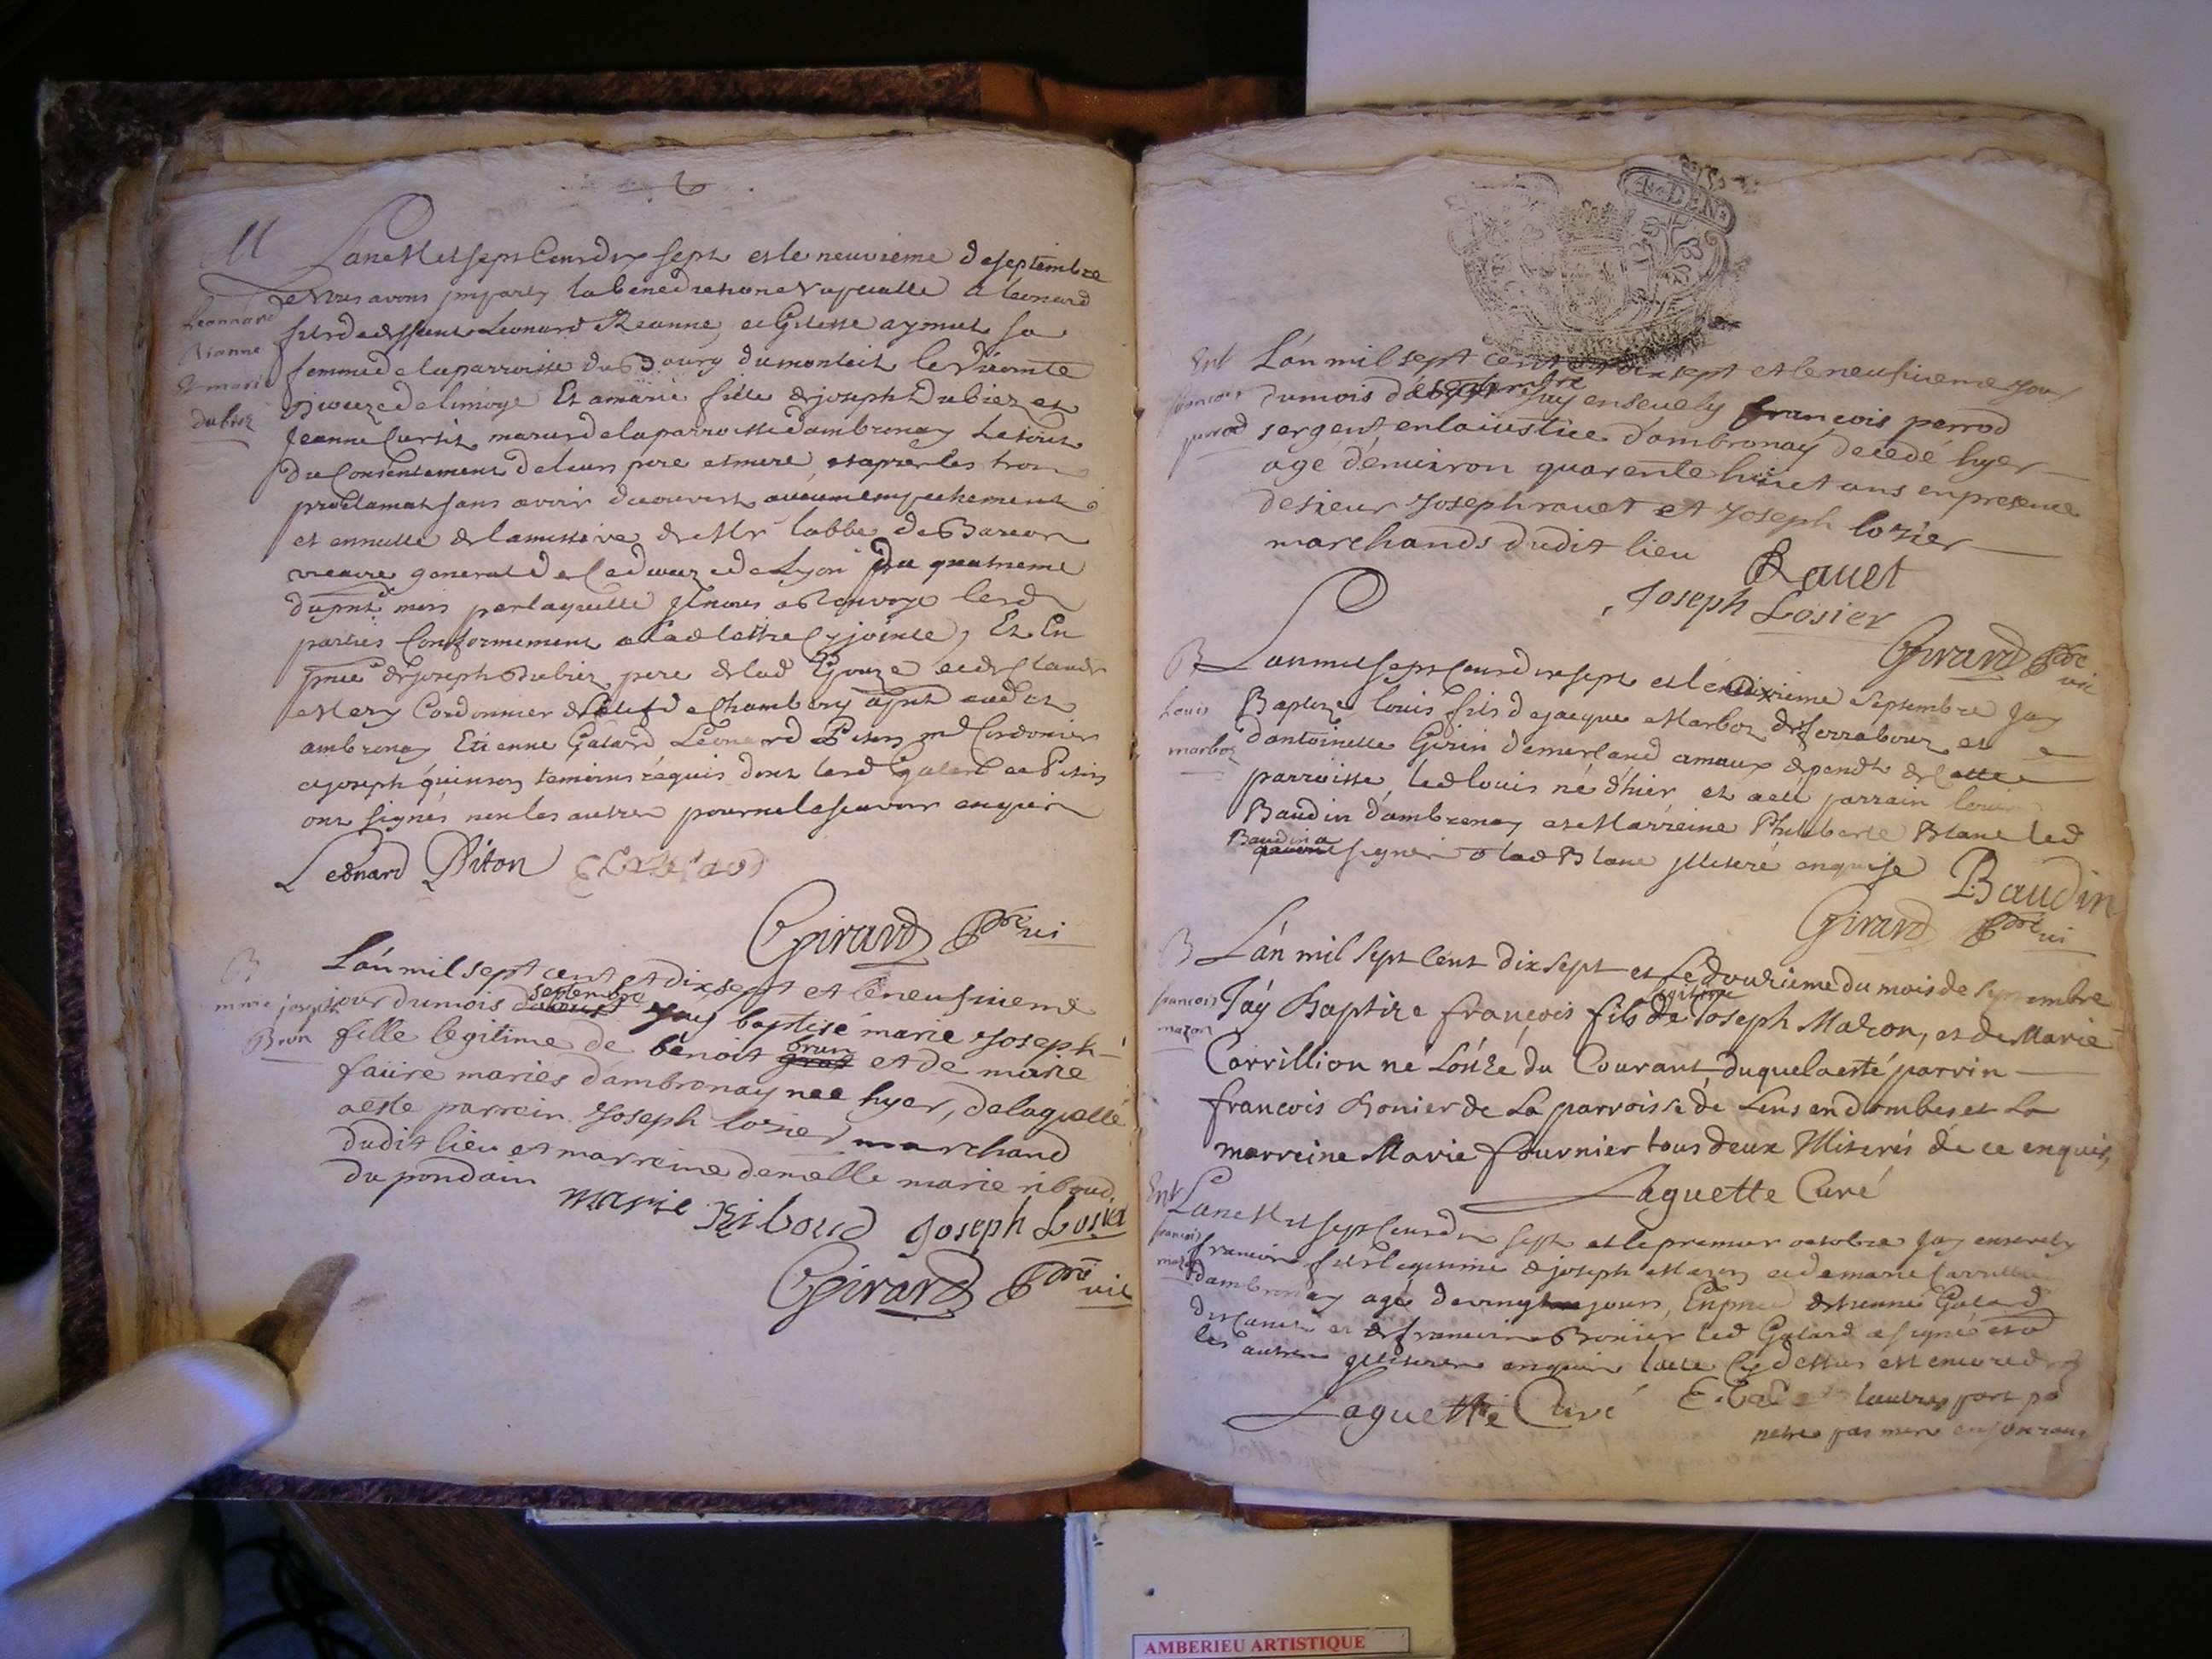 M
Lan Mil sept Cent dix sept et le neuvieme de septembre
Leonnard
Rianne
Et marie
dubiez
Je nous avons imparty la benediction nuptialle a leonard
fils de deffunt Leonard Reanne, et Gilette aymet sa
femme de la parroisse du Bourg du monteit le Vicomte
Dioceze de limoge Et a marie fille de joseph Dubiez et
Jeanne Curtit mariés de la parroisse dambronay Le tout
du Consentement de leurs pere et mere, et apres les trois
proclamat sans avoir decouvert aucun empechement
et en suitte de la missive de Mr labbé de
vicaire general de Ce dioceze de Lyon du quatrieme
du pnt mois par laquelle Il nous a Renvoye lesd
parties Conformement a lad lettre Cy jointe, Et En
pnce de joseph Dubiez pere de lad Epouze et de Claude
Mery Cordonnier de Chambery
ambronay Etienne Galard Leonard Piton md Cordonier
et joseph quinson temoins requis dont lesd Galard et Piton
ont signés non les autres pour ne le scavoir enquis
Leonard Piton E Galard
Girard Ptre vi
B
marie joseph
Bron
L'an mil sept cent et dix sept et le neufuieme
jour du mois daoust septembre j'ay baptisé marie Joseph
fille legitime de benoit gras brun et de marie
faure mariés d'ambronay nee hyer, de laquelle
a esté parrein Joseph lozier marchand
dudit lieu et marreine demelle marie riboud
du pondain
marie Riboud Joseph Losier
Girard Ptre vic
G. DEN.
Ent
francois
perrod
L'an mil sept cent et dix sept et le neufuieme jour
du mois de septembre j'ay enseuely françois perrod
sergent en la iustice d'ambronay decedé hyer
agé d'enuiron quarente huict ans en presence
de sieur Joseph rauet et Joseph lozier
marchands dudit lieu
Rauet
Joseph Losier
Girard Ptre vic
B
Louis
marboz
Lan mil sept Cent dix sept et le dixieme Septembre Jay
Baptizé louis fils de jacque Marboz de serrabour et
dantoinette Girin demeurand amaux dependt de Cette
parroisse, led louis né d'hier et a eu parrain louis
Baudin dambronay et Marreine Philiberte Blanc led
Baudin a signé o lad Blanc illiteré enquise
Baudin
Girard Ptre vi
B
francois
mazon
L'an mil sept Cent dix sept et Le douzieme du mois de septembre
J'ay Baptize françois fils legitime de Joseph Mazon, et de Marie
Carrillion né L'onze du Courant, duquel a esté parrin
françois Bonier de La parroisse de Lens en dombes et La
marreine Marie fournier tous deux Illiterés de ce enquis,
Laguette Curé
Ent
francois
mazon
Lan Mil sept Cent dix sept et le premier octobre Jay enseuely
francois fils legitime de joseph Mazon et de marie Carrillion
dambronay agé de vingt jours, En pnce detienne Galard
et de francois Bonier led Galard a signé et o
les autres illiteres enquis lacte Cy dessus est encore de
Laguette Curé E. Gal lautre part po
netre pas mis en son rang
AMBERIEU ARTISTIQUE